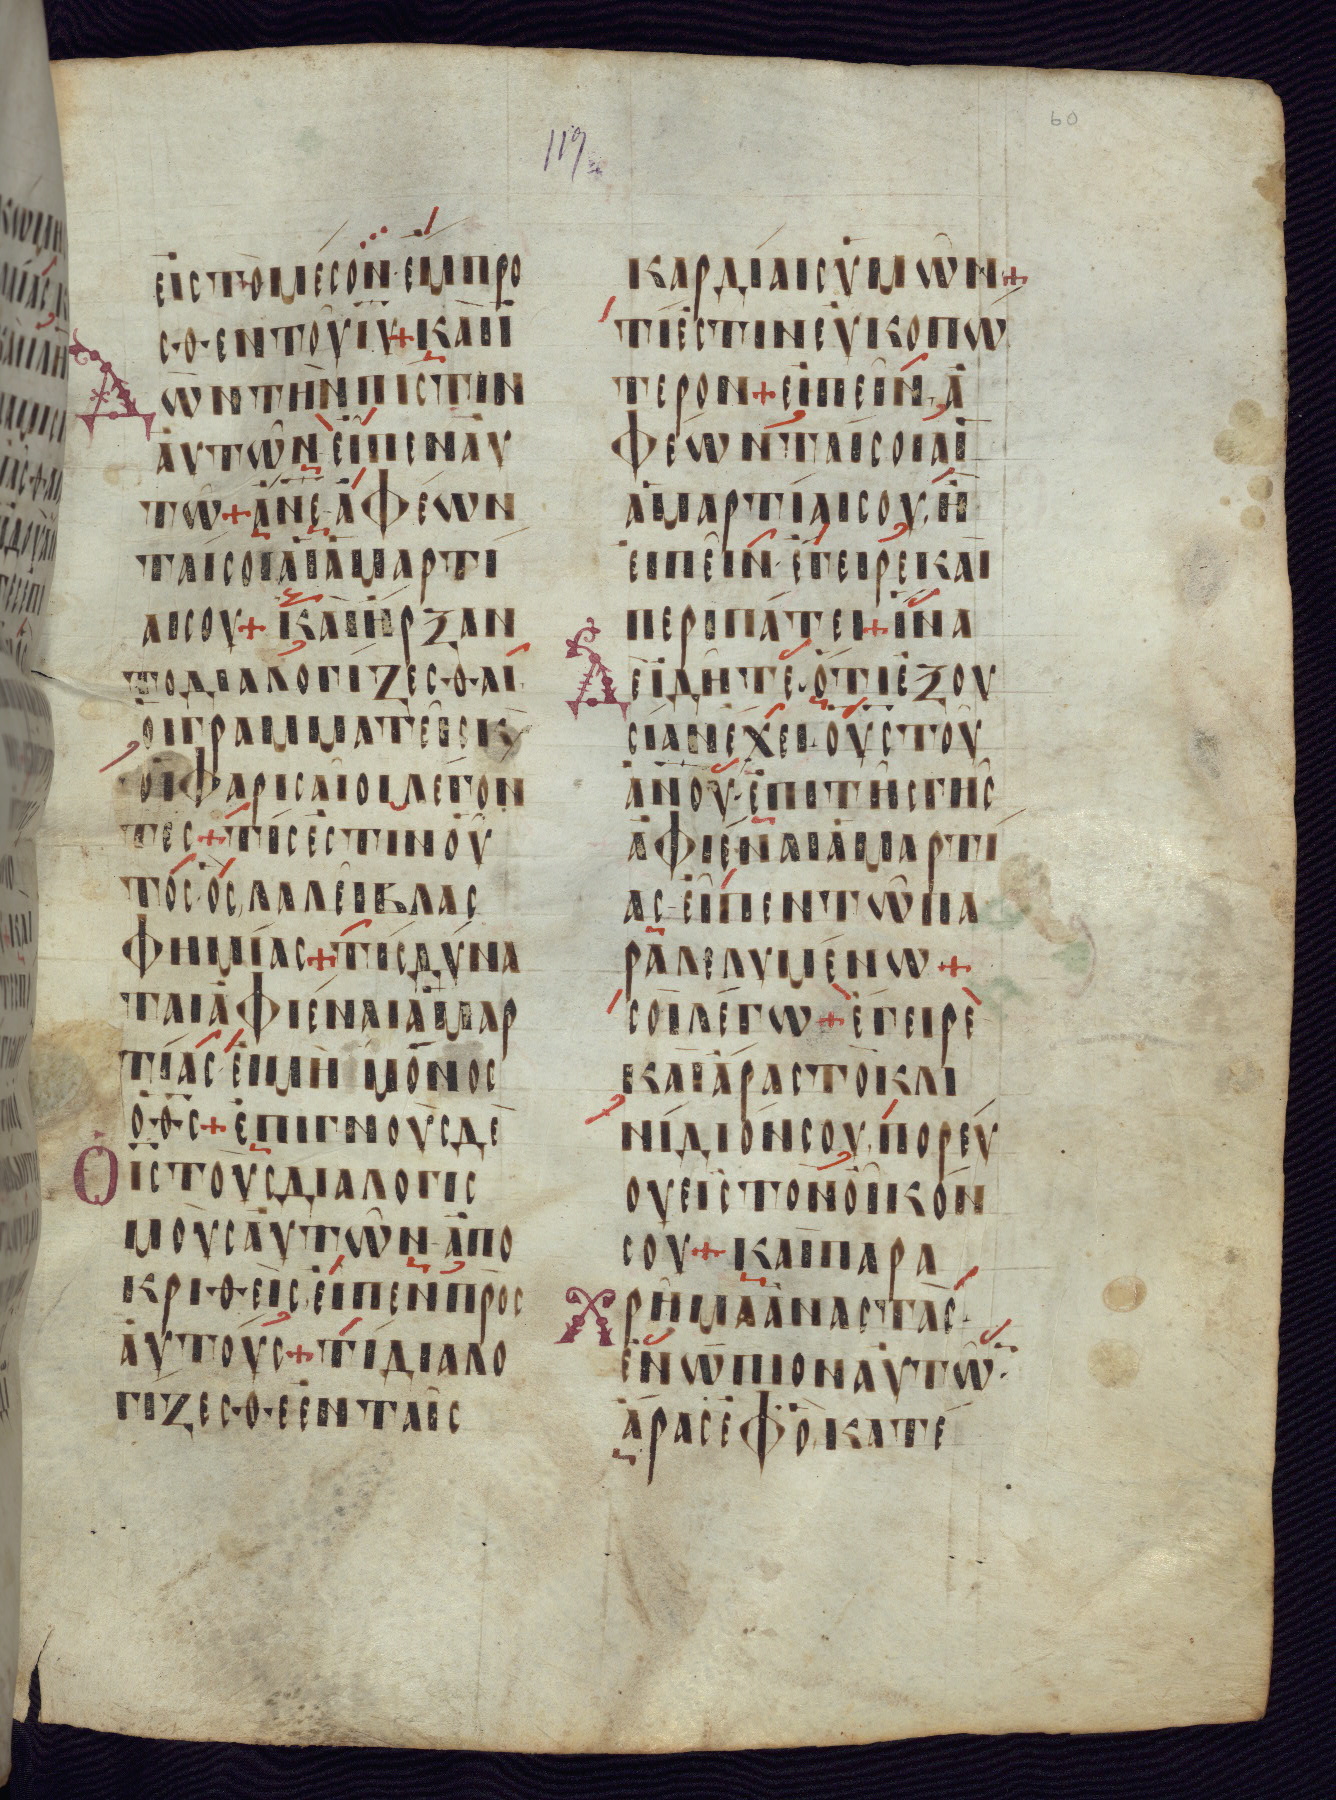 119
60
ΕΙΣ ΤΟ ΜΕΣΟΝ· ΕΜΠΡΟ
ΣΘΕΝ ΤΟΥ ΙΥ + ΚΑΙ Ι
ΔΩΝ ΤΗΝ ΠΙΣΤΙΝ
ΑΥΤΩΝ ΕΙΠΕΝ ΑΥ
ΤΩ + ΑΝΕ· ΑΦΕΩΝ
ΤΑΙ ΣΟΙ ΑΙ ΑΜΑΡΤΙ
ΑΙ ΣΟΥ + ΚΑΙ ΗΡΞΑΝ
ΤΟ ΔΙΑΛΟΓΙΖΕΣΘΑΙ
ΟΙ ΓΡΑΜΜΑΤΕΙΣ Κ
ΟΙ ΦΑΡΙΣΑΙΟΙ ΛΕΓΟΝ
ΤΕΣ + ΤΙΣ ΕΣΤΙΝ ΟΥ
ΤΟΣ· ΟΣ ΛΑΛΕΙ ΒΛΑΣ
ΦΗΜΙΑΣ + ΤΙΣ ΔΥΝΑ
ΤΑΙ ΑΦΙΕΝΑΙ ΑΜΑΡ
ΤΙΑΣ· ΕΙ ΜΗ ΜΟΝΟΣ
Ο ΘΣ + ΕΠΙΓΝΟΥΣ ΔΕ
Ο ΙΣ ΤΟΥΣ ΔΙΑΛΟΓΙΣ
ΜΟΥΣ ΑΥΤΩΝ· ΑΠΟ
ΚΡΙΘΕΙΣ ΕΙΠΕΝ ΠΡΟΣ
ΑΥΤΟΥΣ + ΤΙ ΔΙΑΛΟ
ΓΙΖΕΣΘΕ ΕΝ ΤΑΙΣ
ΚΑΡΔΙΑΙΣ ΥΜΩΝ +
ΤΙ ΕΣΤΙΝ ΕΥΚΟΠΩ
ΤΕΡΟΝ + ΕΙΠΕΙΝ, Α
ΦΕΩΝΤΑΙ ΣΟΙ ΑΙ
ΑΜΑΡΤΙΑΙ ΣΟΥ, Η
ΕΙΠΕΙΝ· ΕΓΕΙΡΕ ΚΑΙ
ΠΕΡΙΠΑΤΕΙ + ΙΝΑ
ΔΕ ΙΔΗΤΕ· ΟΤΙ ΕΞΟΥ
ΣΙΑΝ ΕΧΕΙ· Ο ΥΣ ΤΟΥ
ΑΝΟΥ· ΕΠΙ ΤΗΣ ΓΗΣ
ΑΦΙΕΝΑΙ ΑΜΑΡΤΙ
ΑΣ· ΕΙΠΕΝ ΤΩ ΠΑ
ΡΑΛΕΛΥΜΕΝΩ +
ΣΟΙ ΛΕΓΩ + ΕΓΕΙΡΕ
ΚΑΙ ΑΡΑΣ ΤΟ ΚΛΙ
ΝΙΔΙΟΝ ΣΟΥ, ΠΟΡΕΥ
ΟΥ ΕΙΣ ΤΟΝ ΟΙΚΟΝ
ΣΟΥ + ΚΑΙ ΠΑΡΑ
ΧΡΗΜΑ ΑΝΑΣΤΑΣ·
ΕΝΩΠΙΟΝ ΑΥΤΩ̅·
ΑΡΑΣ ΕΦ Ο, ΚΑΤΕ